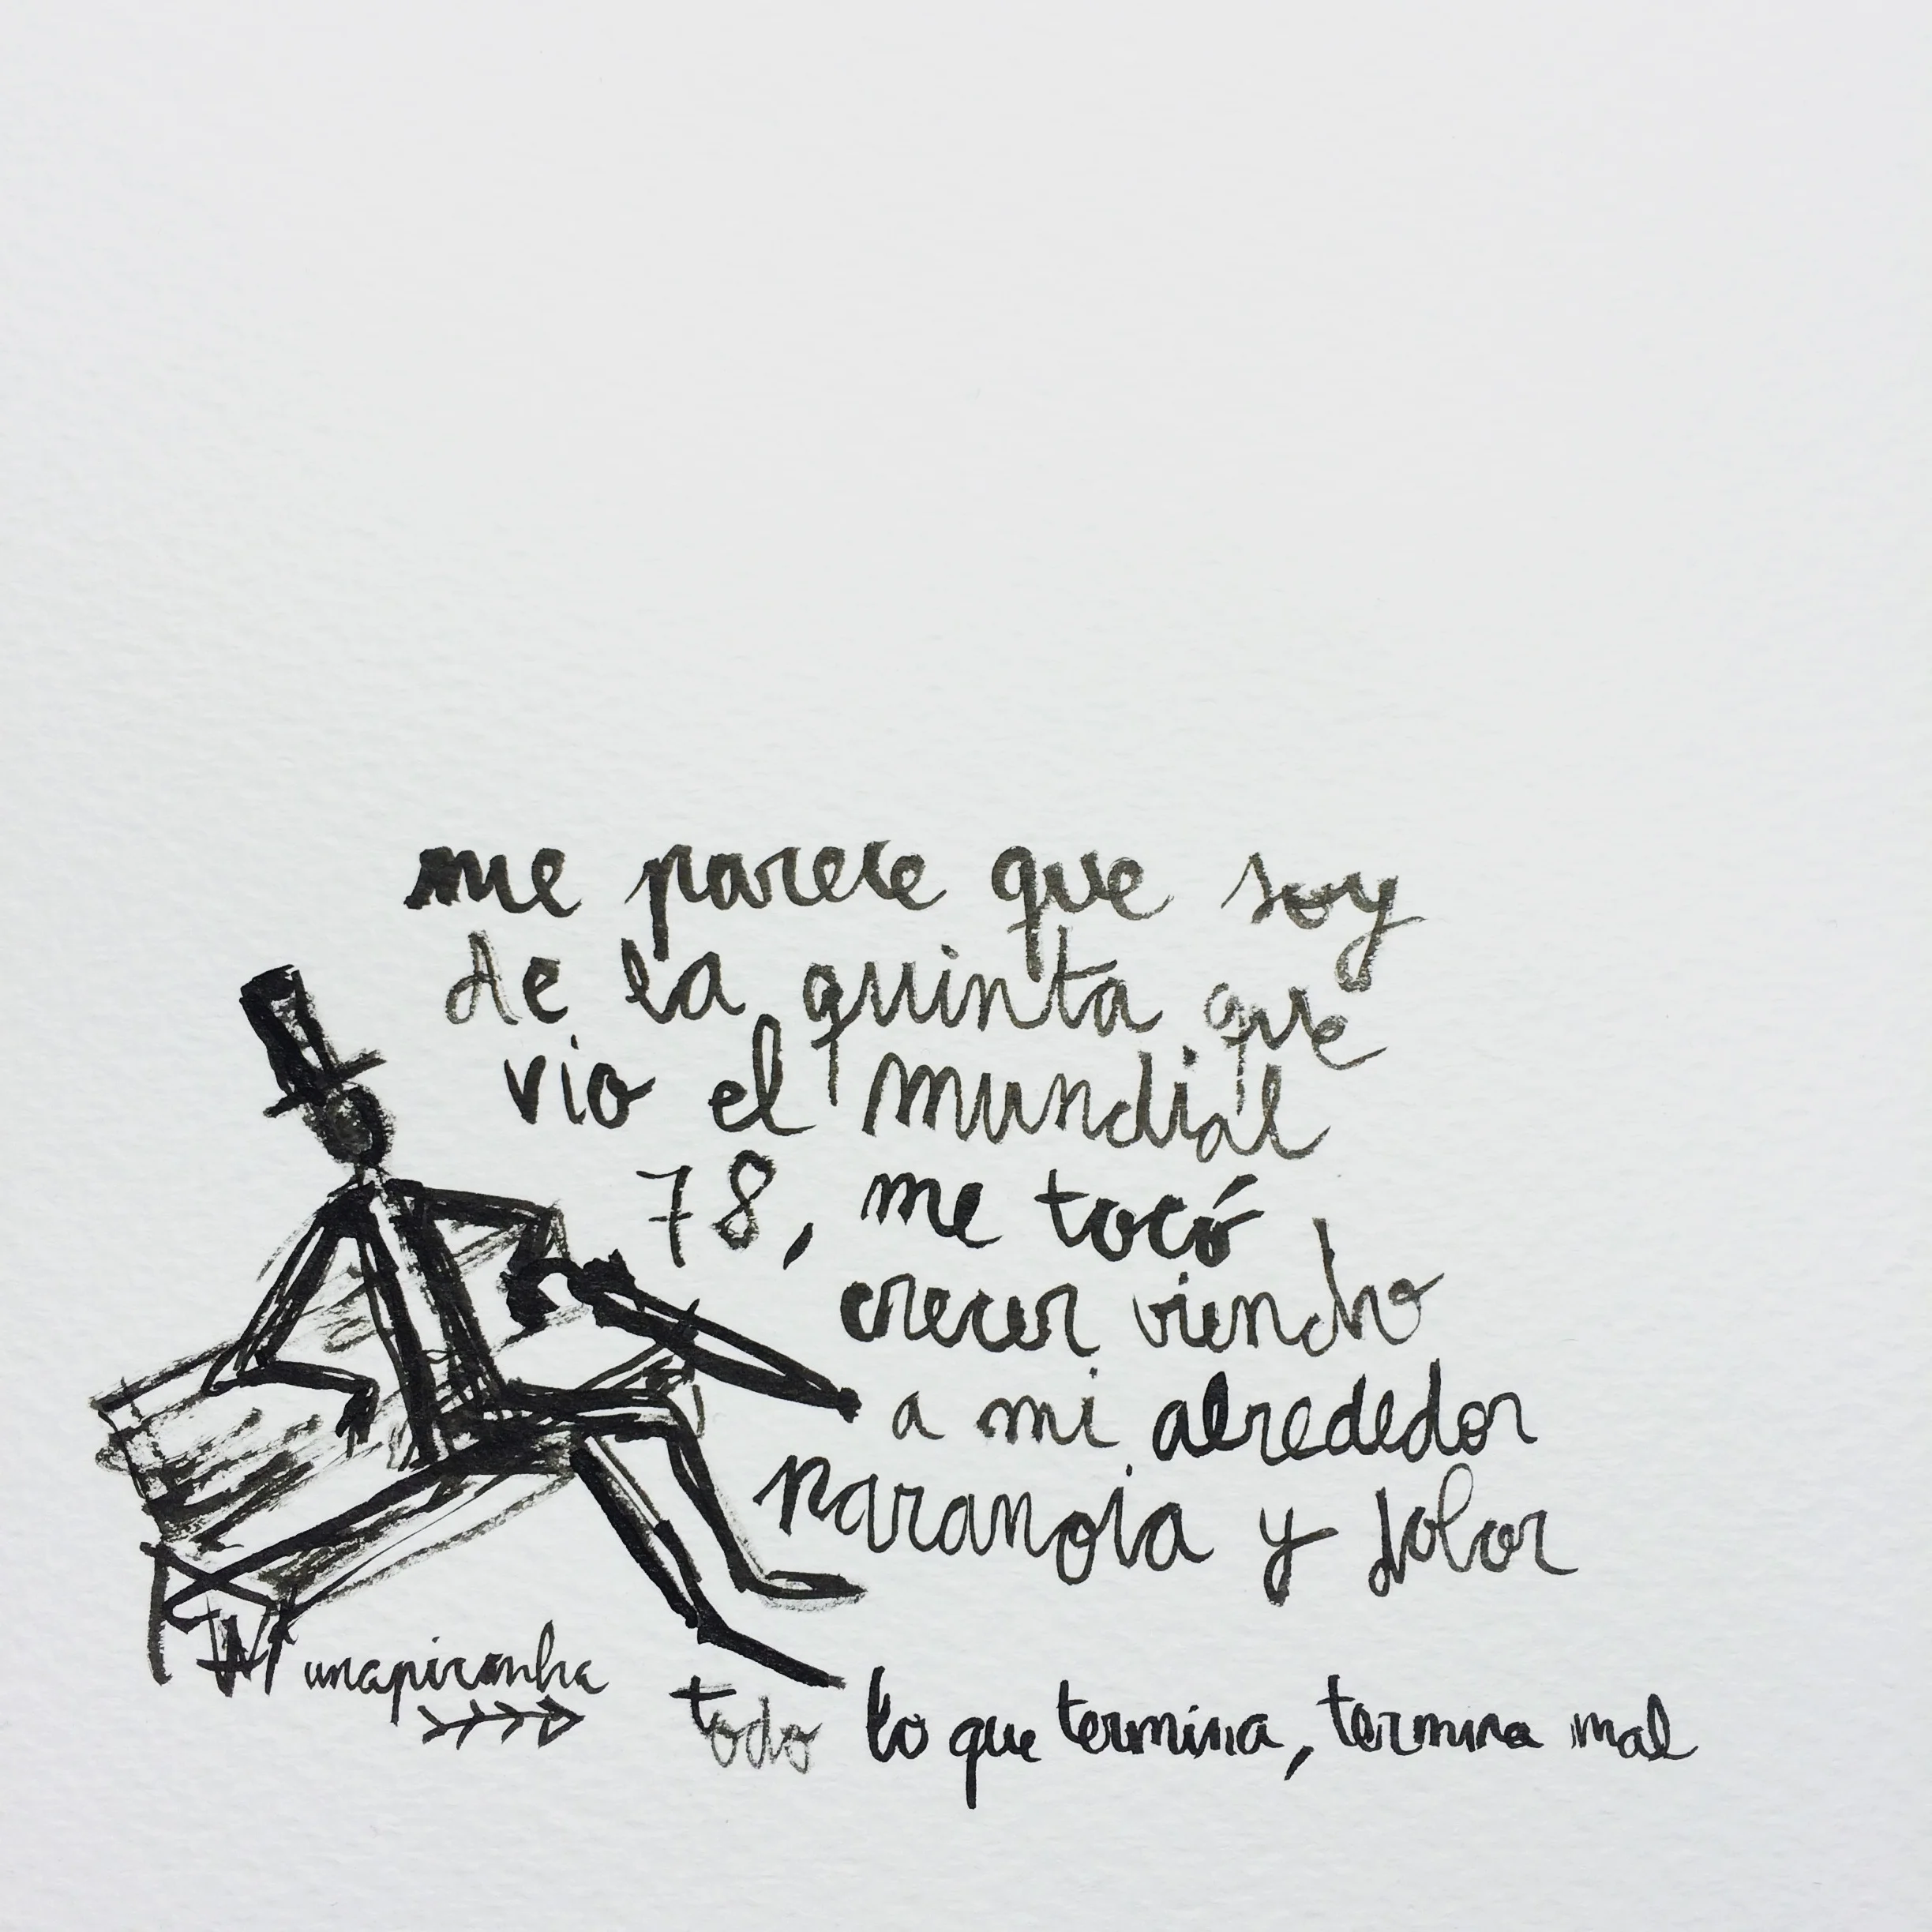 me parece que soy
de la quinta que
vio el mundial
78, me tocó
crecer viendo
a mi alrededor
paranoia y dolor
unapiranha
todo lo que termina, termina mal